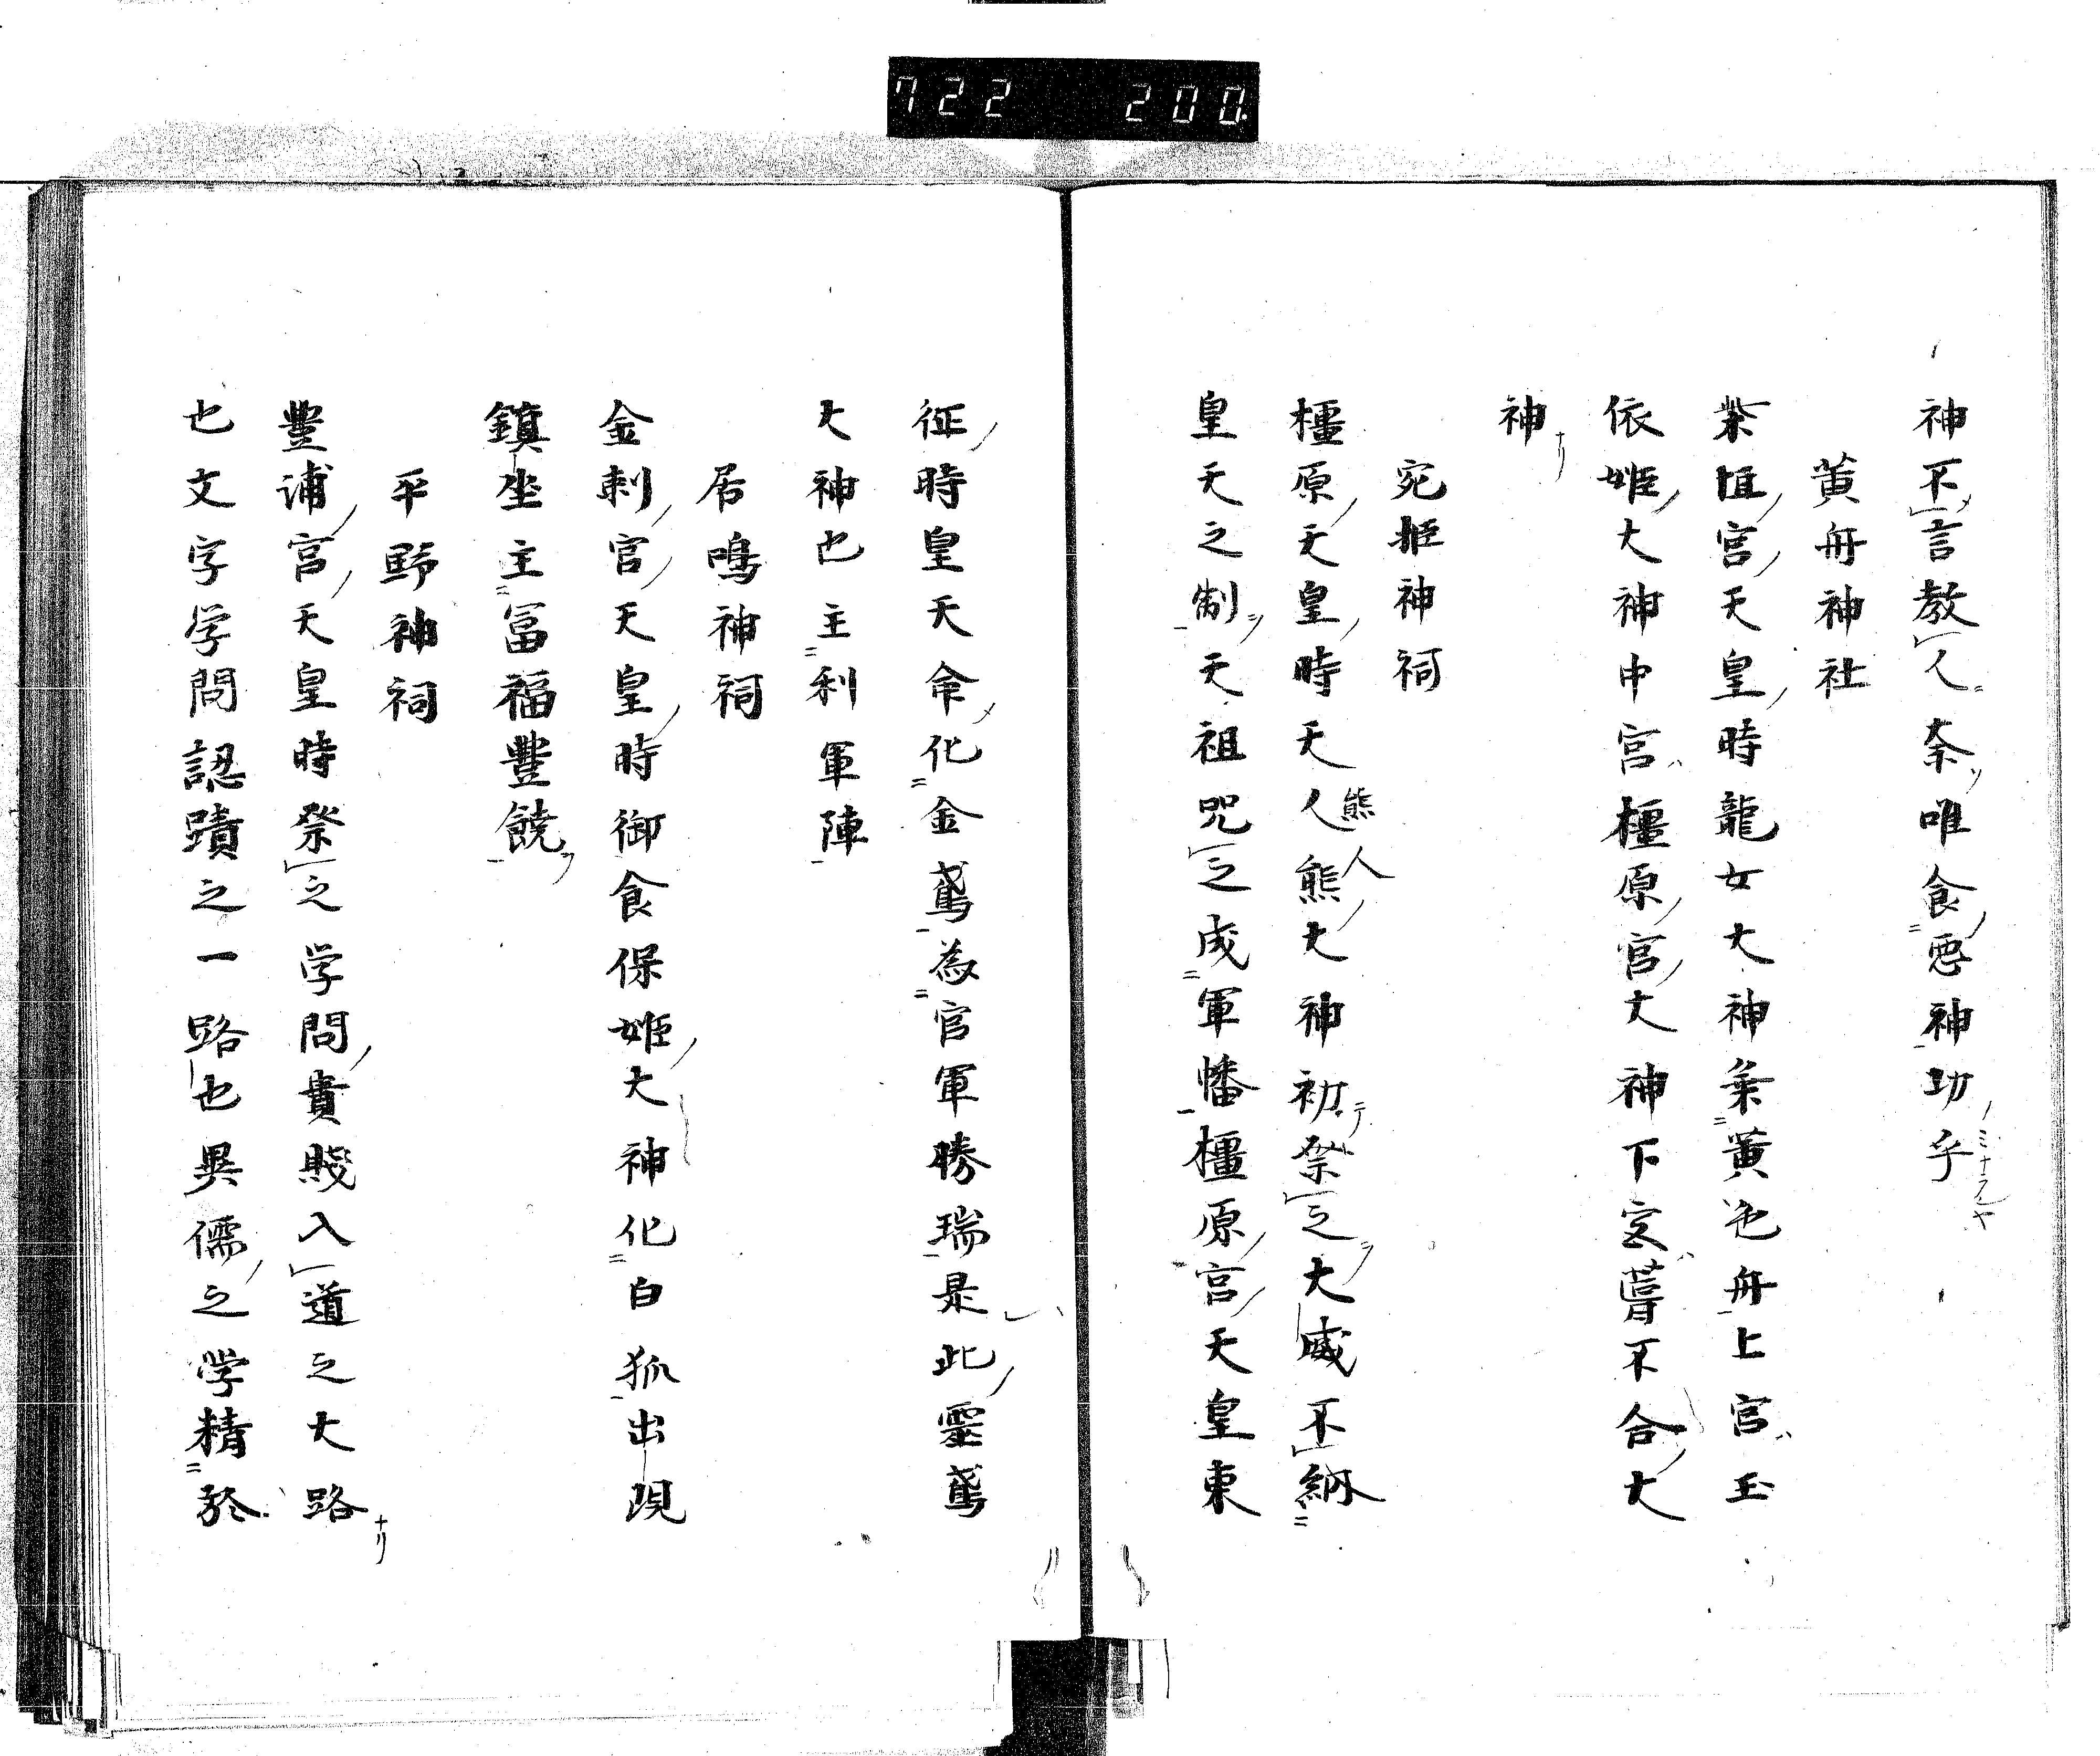 722 200
神不言教人奈唯食悪神功乎
黄舟神社
柴垣宮天皇時龍女大神乗黄色舟上宮玉
依姫大神中宮橿原宮大神下宮葺不合大
神
宛姫神祠
橿原天皇時天人熊大神初祭之大威不納
熊人
皇天之制天祖咒之成軍幡橿原宮天皇東
征時皇天命化金鳶為官軍勝瑞是此霊鳶
大神也主利軍陣
居鳴神祠
金刺宮天皇時御食保姫大神化白狐出現
鎮坐主冨福豐饒
平野神祠
豐浦宮天皇時祭之学問貴賤入道之大路
也文字学問認蹟之一路也異儒之学精於